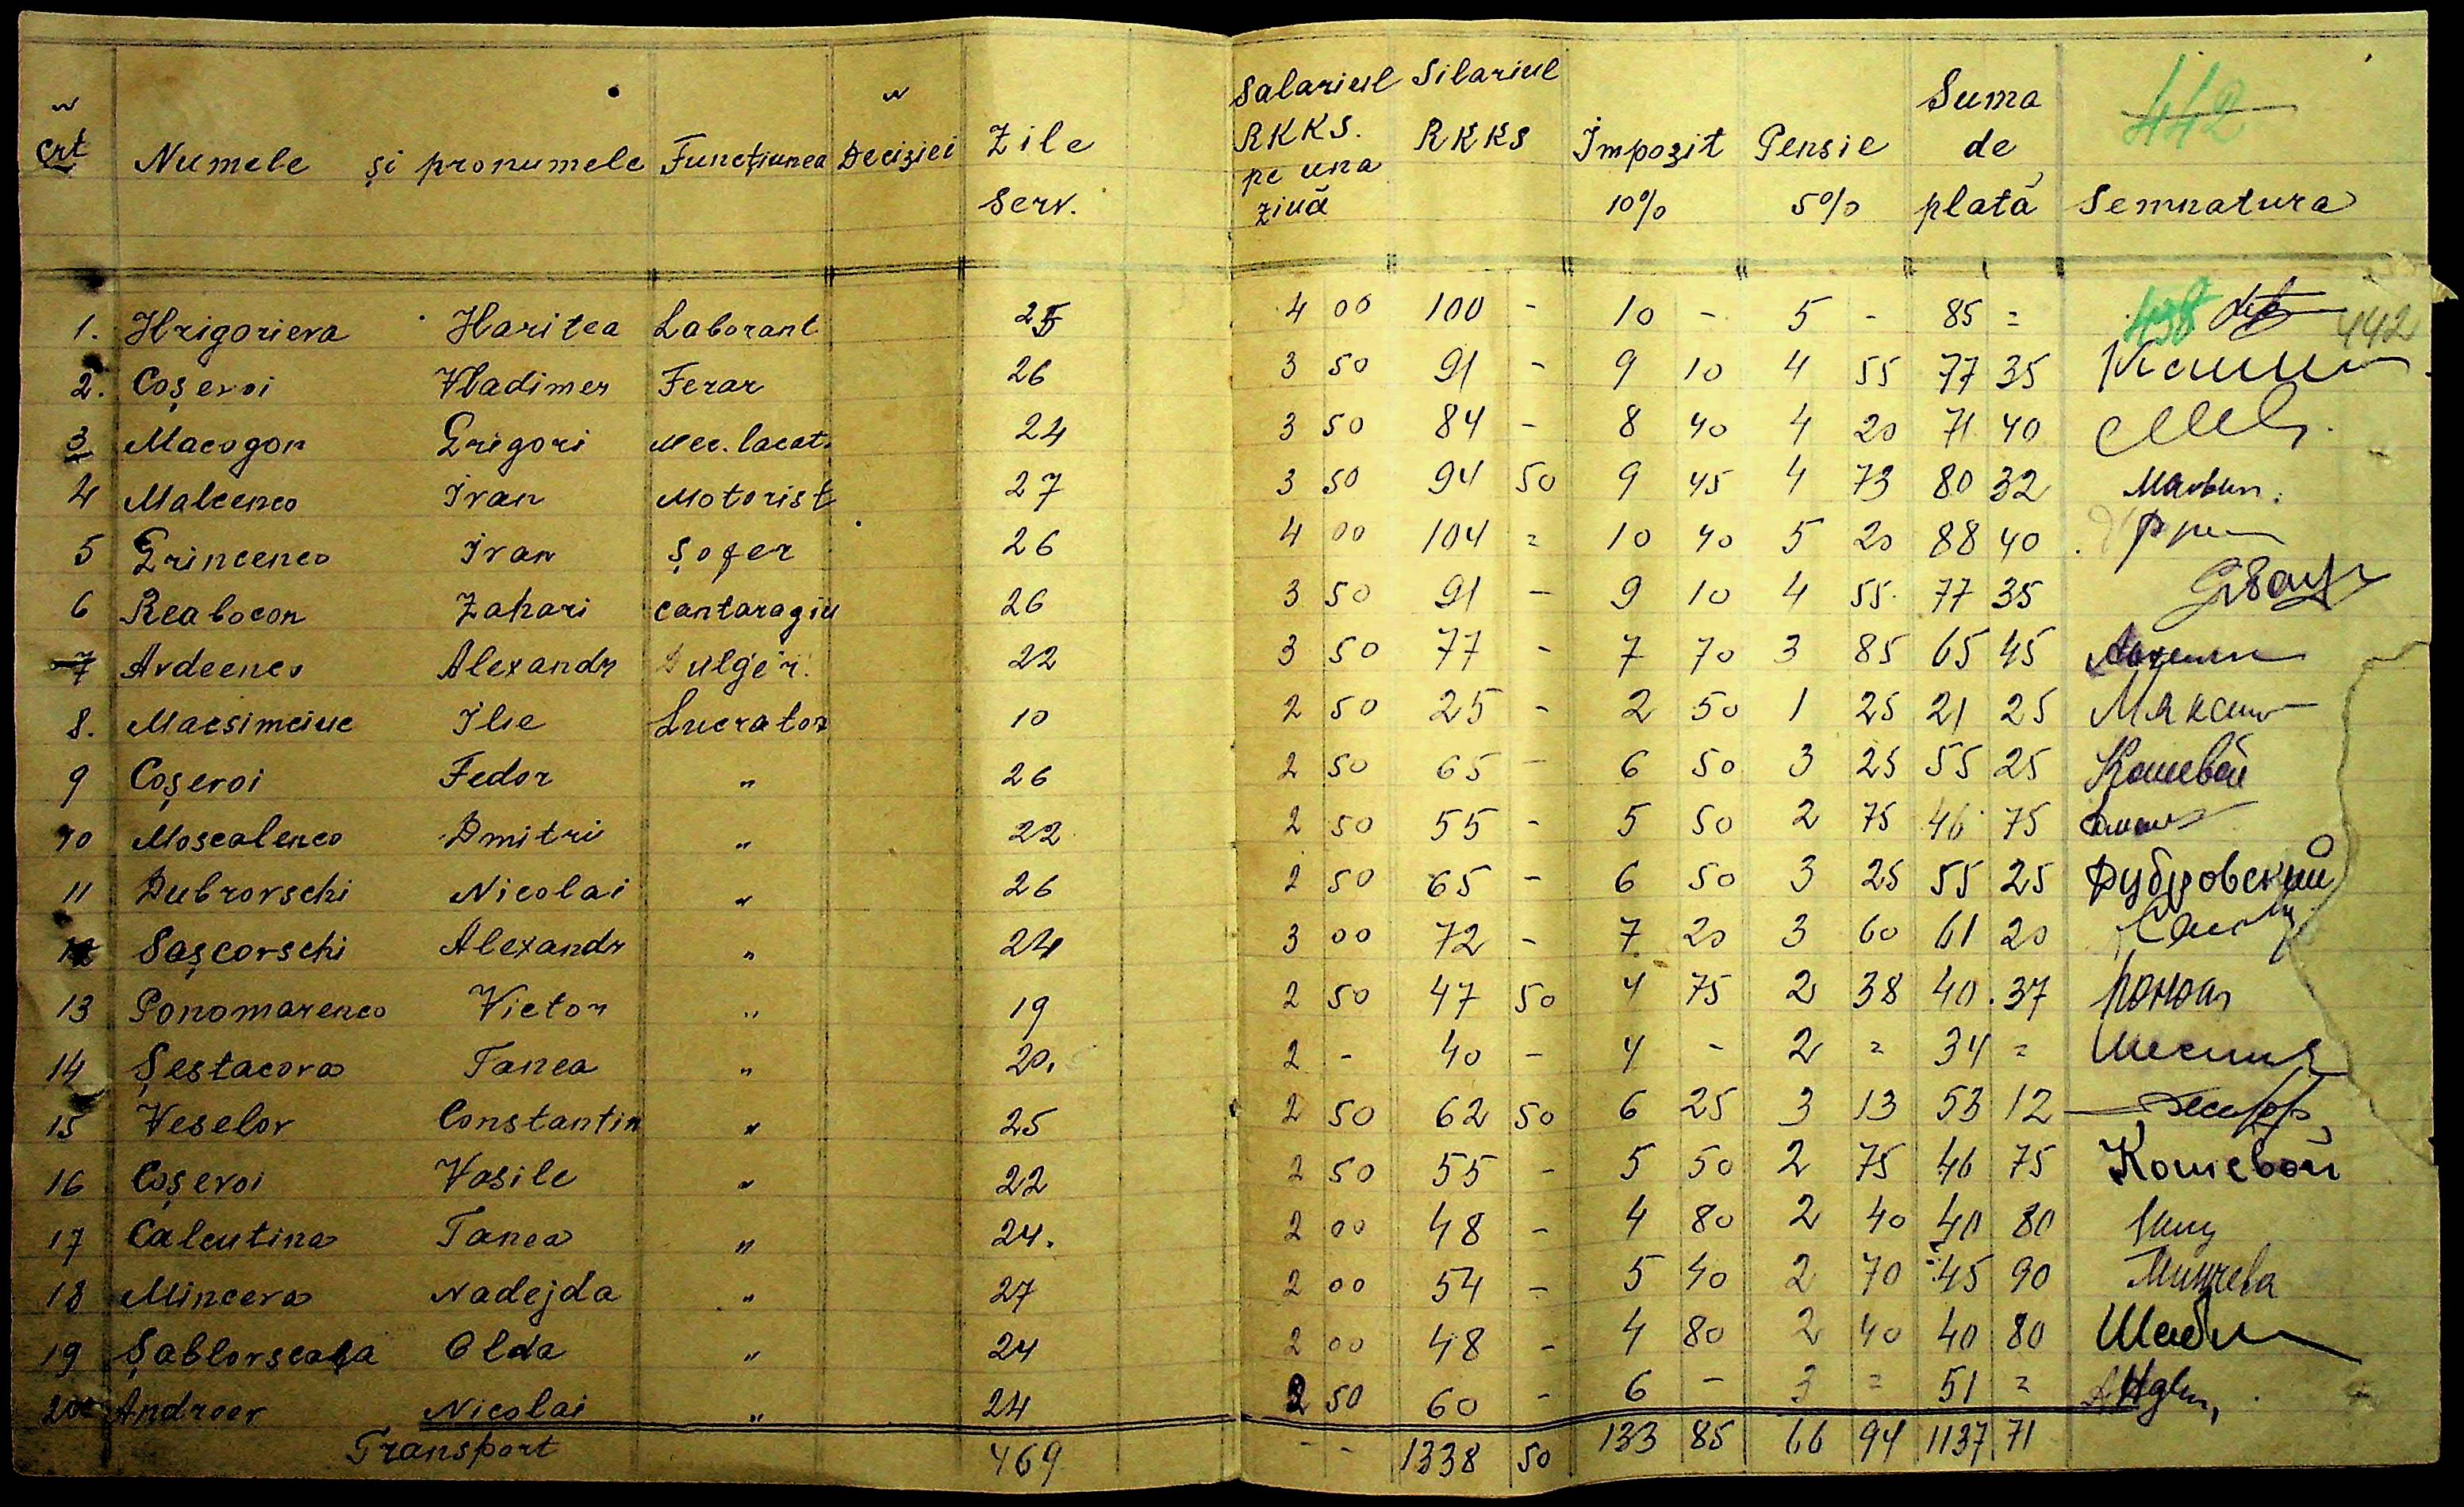 442
N crt Numele și pronumele Funcțiunea N Deciziei Zile serv. Salariul RKKS. pe una ziuă Silariul RKKS Impozit 10% Pensie 5% Suma de plată Semnatura
438 442
1. Hrigorieva Haritea Laborant 25 4 00 100 - 10 - 5 - 85 =
2. Coșevoi Vladimer Ferar 26 3 50 91 - 9 10 4 55 77 35
3 Macogon Grigori Mec. lacat. 24 3 50 84 - 8 40 4 20 71 40
4 Malcenco Ivan Motorist 27 3 50 94 50 9 45 4 73 80 32
5 Grincenco Ivan șofer 26 4 00 104 = 10 40 5 20 88 40
6 Reabocon Zahari cantaragiu 26 3 50 91 - 9 10 4 55 77 35
7 Avdeenco Alexandr Dulger. 22 3 50 77 - 7 70 3 85 65 45
8. Macsimciuc Ilie Lucrator 10 2 50 25 - 2 50 1 25 21 25 Максим
9 Coșevoi Fedor " 26 2 50 65 - 6 50 3 25 55 25 Кошевой
10 Moscalenco Dmitri " 22 2 50 55 - 5 50 2 75 46 75
11 Dubrovschi Nicolai " 26 2 50 65 - 6 50 3 25 55 25 Дубровский
12 Sașcovschi Alexandr " 24 3 00 72 - 7 20 3 60 61 20
13 Ponomarenco Victor " 19 2 50 47 50 4 75 2 38 40.37
14 Șestacova Tanea " 20. 2 - 40 - 4 - 2 = 34 =
15 Veselov Constantin " 25 2 50 62 50 6 25 3 13 53 12
16 Coșevoi Vasile " 22 2 50 55 - 5 50 2 75 46 75 Кошевой
17 Calcutina Tanea " 24. 2 00 48 - 4 80 2 40 40 80
18 Minceva Nadejda " 27 2 00 54 - 5 40 2 70 45 90 Минчева
19 Șablovscaia Olda " 24 2 00 48 - 4 80 2 40 40 80
20 Andreev Nicolai " 24 2 50 60 - 6 - 3 = 51 =
Transport 469 - - 1338 50 133 85 66 94 1137 71